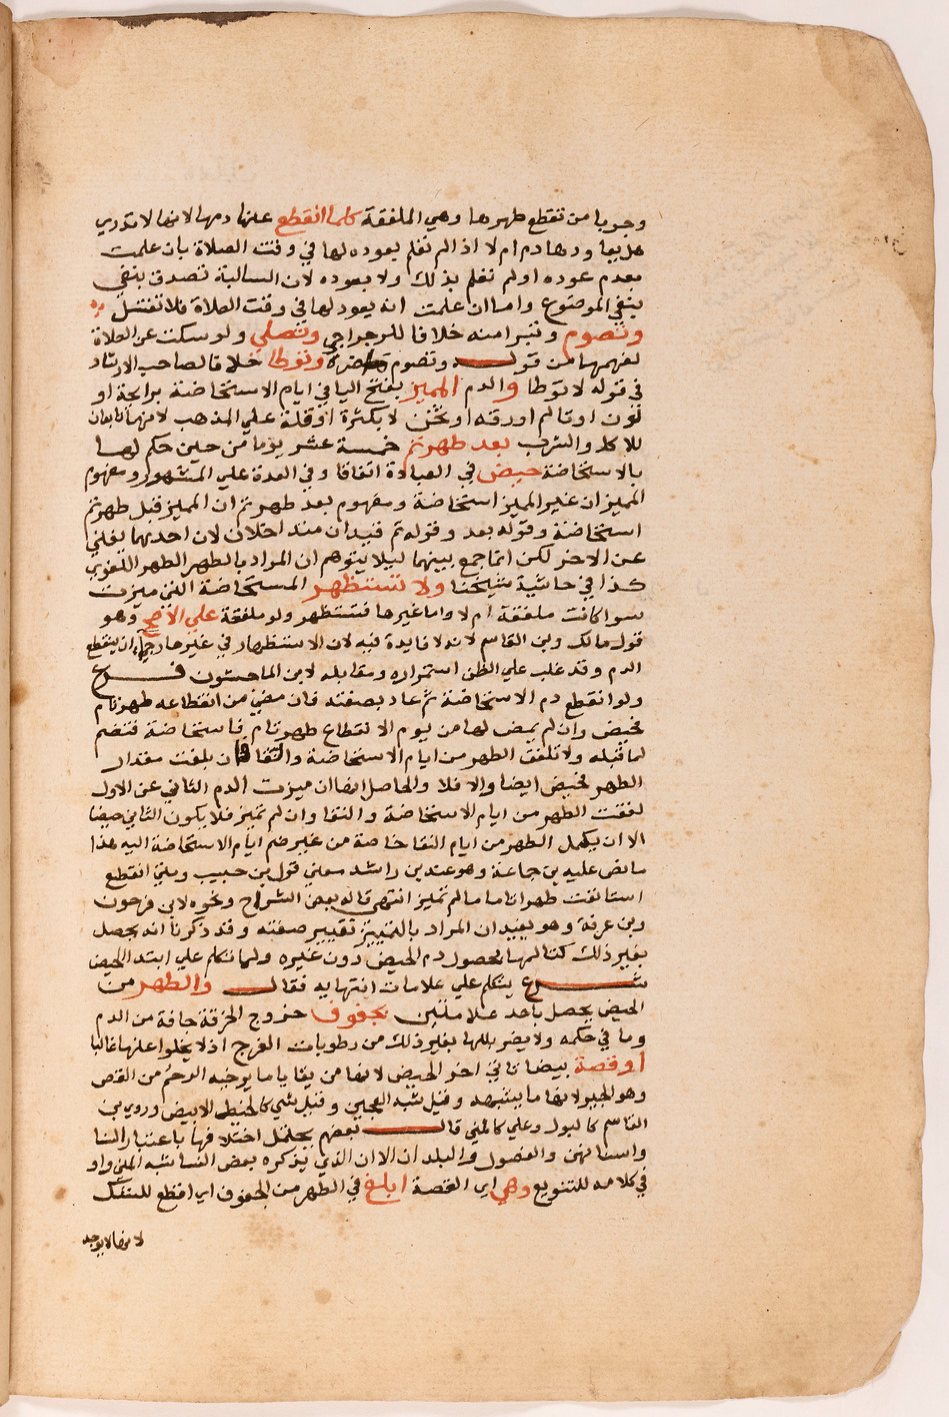 وجوبا من تقطع طهرها وهي الملفقة كلما انقطع عنها دمها لانها لا تدري
هل يعاودها دم ام لا اذا لم تعلم بعوده لها في وقت الصلاة بان علمت
بعدم عوده او لم تعلم بذلك ولا بعوده لان السالبة تصدق بنفي
بنفي الموضوع واما ان علمت انه يعود لها في وقت الصلاة فلا تغتسل
وتصوم وتبرا منه خلافا للرجراجي وتصلي ولو سكت عن الصلاة
لفهمها من قوله وتصوم وتوطا خلافا لصاحب الارشاد
في قوله لا توطا والدم المميز بفتح اليا في ايام الاستحاضة برايحة او
لون او تالم او رقة او ثخن لا بكثرة او قلة علي المذهب لانهما تابعان
للاكل والشرب بعد طهر تم خمسة عشر يوما من حين حكم لها
بالاستحاضة حيض في العبادة اتفاقا وفي العدة علي المشهور ومفهوم
المميز ان غير المميز استحاضة ومفهوم بعد طهر تم ان المميز قبل طهر تم
استحاضة وقوله بعد وقوله تم قيدان متداخلان لان احدهما يغني
عن الاخر لكن انما جمع بينهما ليلا يتوهم ان المراد بالطهر الطهر اللغوي
كذا في حاشية شيخنا ولا تستظهر المستحاضة التي ميزت
سوا كانت ملفقة ام لا واما غيرها فتستظهر ولو ملفقة علي الاصح وهو
قول مالك وبن القاسم لانه لا فايدة فيه لان الاستظهار في غيرها رجا ان ينقطع
الدم وقد غلب علي الظن استمراره ومقابله لابن الماجشون فرع
ولو انقطع دم الاستحاضة ثم عاد بصفته فان مضي من انقطاعه طهر تام
فحيض وان لم يمض لها من يوم الانقطاع طهر تام فاستحاضة فتضم
لما قبله ولا تلفق الطهر من ايام الاستحاضة والنقا فان بلغت مقدار
الطهر فحيض ايضا والا فلا والحاصل ايضا ان ميزت الدم الثاني عن الاول
لفقت الطهر من ايام الاستحاضة والنقا وان لم تميز فلا يكون الثاني حيضا
الا ان يكمل الطهر من ايام النقا خاصة من غير ضم ايام الاستحاضة اليه هذا
ما نص عليه بن جماعة وهو عند بن راشد معني قول بن حبيب ومتي انقطع
استانفت طهرا تاما ما لم تميز انتهي قاله بعض الشراح ونحوه لابن فرحون
وبن عرفة وهو يفيد ان المراد بالتمييز تغيير صفته وقد ذكرنا انه يحصل
بغير ذلك كتالمها بحصول دم الحيض دون غيره ولما تكلم علي ابتدا الحيض
شرع يتكلم علي علامات انتهايه فقال والطهر من
الحيض يحصل باحد علامتين بجفوف خروج الخرقة جافة من الدم
وما في حكمه ولا يضر بللها بغير ذلك من رطوبات الفرج اذ لا يخلوا عنها غالبا
او قصة بيضا تاتي اخر الحيض لانها من بقايا ما يرخيه الرحم من القص
وهو الجير لانها ما يشبهه وقيل شبه العجين وقيل شي كالخيط الابيض وروي بن
القاسم كالبول وعلي كالمني قال بعضهم يحتمل اختلافها باعتبار النسا
واسنانهن والفصول والبلدان الا ان الذي يذكره بعض النسا شبه المني واو
في كلامه للتنويع وهي اي القصة ابلغ في الطهر من الجفوف اي اقطع للشك
لانها لا يوجد